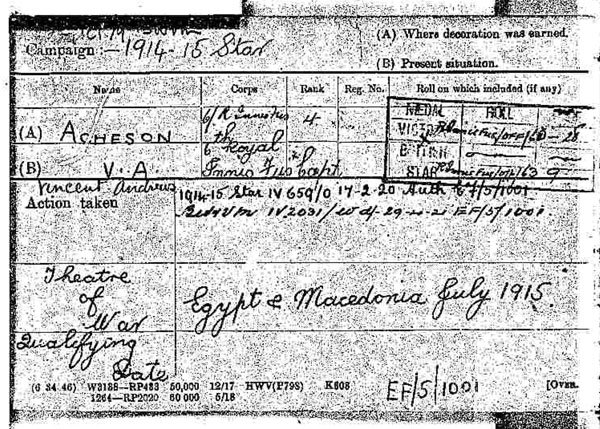 Campaign:- 1914-15 Star
(A) Where decoration was earned.
(B) Present situation.
Name Corps Rank Reg. No. Roll on which included (if any)
MEDAL ROLL
(A) ACHESON 6/R 4
VICTORY /OFF/63 28
BRITISH
(B) V. A 6th Royal Innis Fus Capt
STAR 9
Vincent Andrew
Action taken
1914-15 Star IV 659/0 17-2-20 Auth EF/5/1001
IV 2031/ EF/5/1001.
Theatre of War
Qualifying Date
Egypt & Macedonia July 1915.
(6 34 46) W3188—RP483 50,000 12/17 HWV(P798) K608
1264—RP2020 60 000 5/18
EF/5/1001
[OVER.